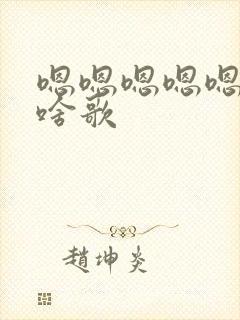 嗯嗯嗯嗯嗯
啥歌
趙坤炎